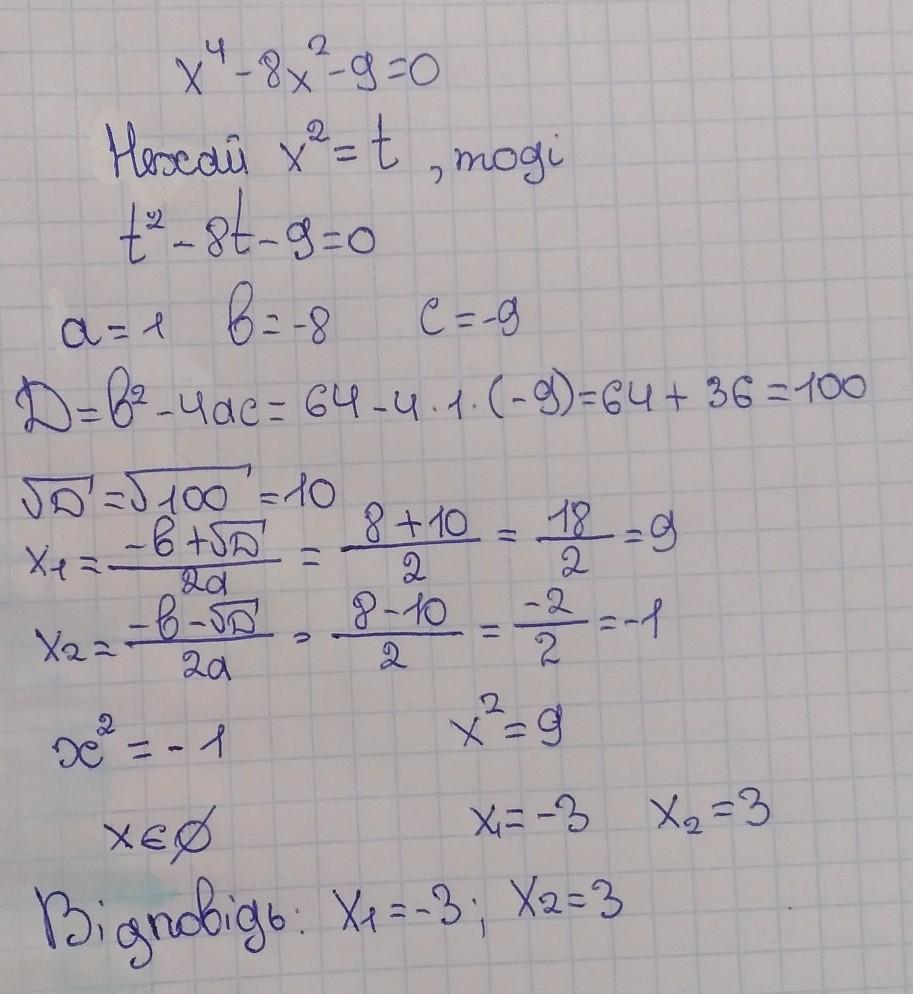 x⁴-8x²-9=0
Нехай x²=t, тоді
t²-8t-9=0
a=1 b=-8 c=-9
D=b²-4ac=64-4·1·(-9)=64+36=100
√D=√100=10
x₁=(-b+√D)/2a=(8+10)/2=18/2=9
x₂=(-b-√D)/2a=(8-10)/2=-2/2=-1
x²=-1 x²=9
x∈∅ x₁=-3 x₂=3
Відповідь: x₁=-3; x₂=3